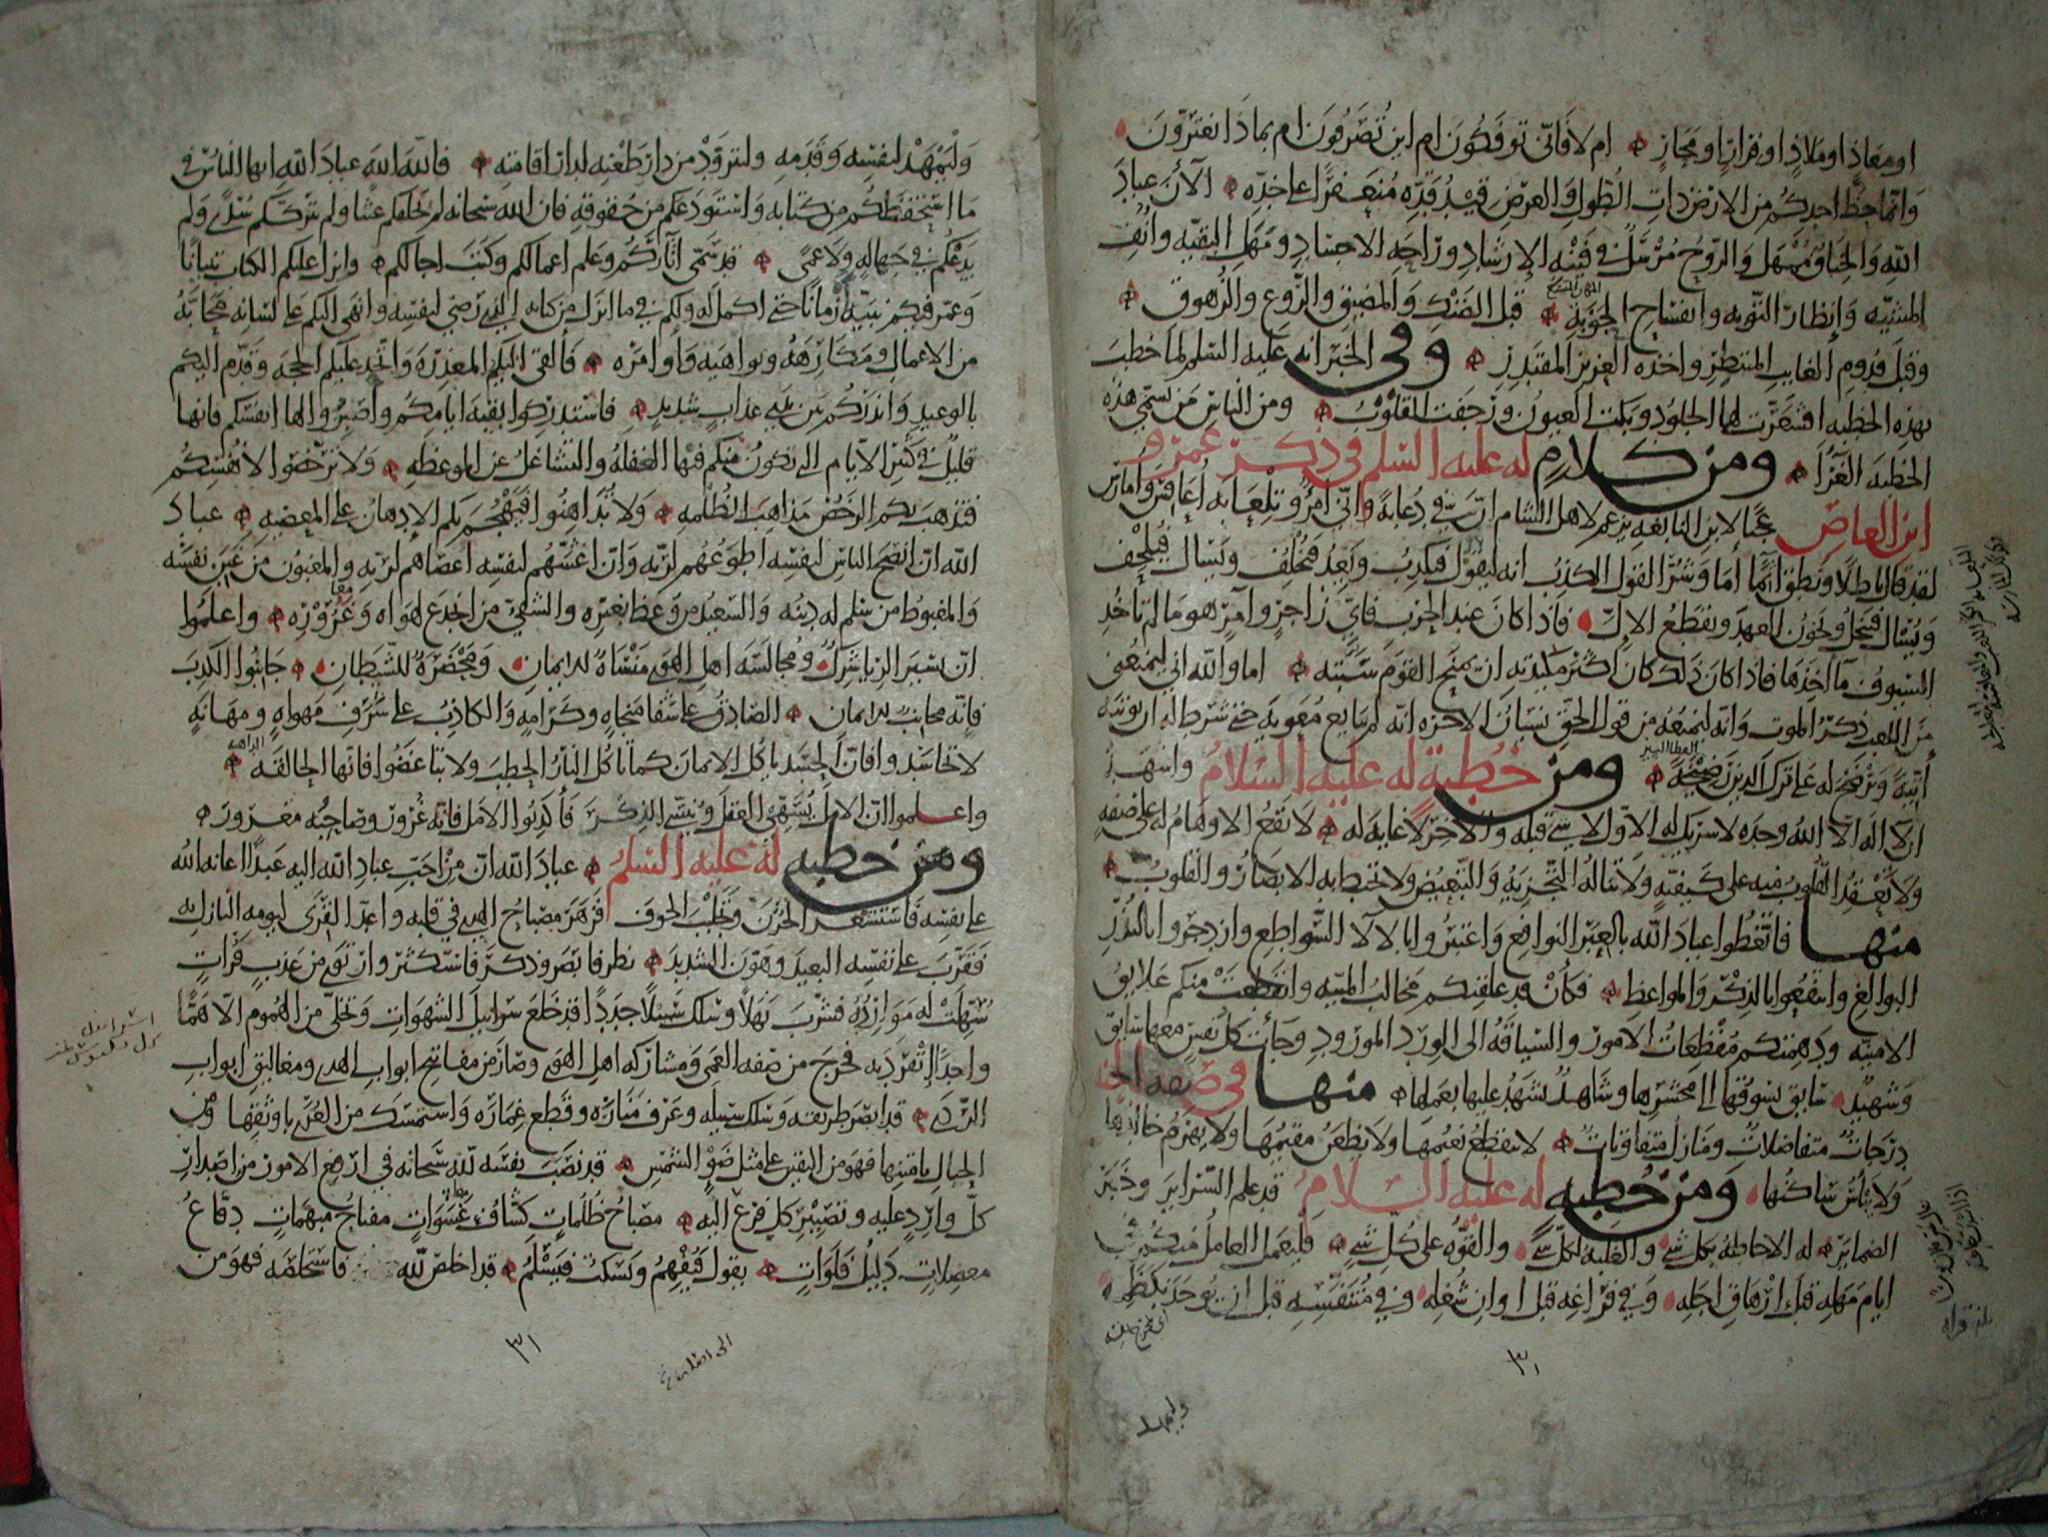 او معاذ او ملاذ او فرار او مجاز ام لا فانى توفكون ام اين تصرفون ام بماذا تغترون
وانما حظ احدكم من الارض ذات الطول والعرض قيد قده منعفرا على خده الآن عباد
الله والخناق مهمل والروح مرسل فى فينة الإرشاد وراحة الاجساد ومهل البقية وانف
المشية وإنظار التوبة وانفساح الحوبة قبل الضنك والمضيق والروع والزهوق
وقبل قدوم الغايب المنتظر واخذه العزيز المقتدر وفى الخبر انه عليه السلم لما خطب
بهذه الخطبه اقشعرت لها الجلود وبكت العيون ورجفت القلوب ومن الناس من يسمى هذه
الخطبة الغرا ومن كلام له عليه السلم فى ذكر عمرو
ابن العاص عجبا لابن النابغه يزعم لاهل الشام ان فى دعابة وانى امرؤ تلعابه اعافس وامارس
لقد قال باطلا ونطق آثما أما وشر القول الكذب انه ليقول فيكذب ويعد فيخلف ويسال فيلحف
ويسال فيبخل ويخون العهد ويقطع الإل فاذا كان عند الحرب فاى زاجر وآمر هو ما لم تاخذ
السيوف مآخذها فاذا كان ذلك كان اكثر مكيدته ان يمنح القوم سبته اما والله انى ليمنعنى
من اللعب ذكر الموت وانه ليمنعه من قول الحق نسيان الاخره انه لم يبايع معويه حتى شرط له ان يوتيه
أتية ويرضخ له على ترك الدين رضيخة ومن خطبة له عليه السلام واشهد
ان لا اله الا الله وحده لا شريك له الاول لا شى قبله والآخر لا غاية له لا تقع الاوهام له على صفه
ولا تعقد القلوب منه على كيفية ولا تناله التجزية والتبعيض ولا تحيط به الابصار والقلوب
منها فاتعظوا عباد الله بالعبر النوافع واعتبروا بالآلا السواطع وازدجروا بالنذر
البوالغ وانتفعوا بالذكر والمواعظ فكأن قد علقتكم مخالب المنية وانقطعت منكم علايق
الامنية ودهمتكم مفظعات الامور والسياقة الى الورد المورود وجات كل نفس معها سايق
وشهيد سايق يسوقها الى محشرها وشاهد يشهد عليها بعملها منها فى صفه الجنه
درجات متفاضلات ومنازل متفاوتات لا ينقطع نعيمها ولا يظعن مقيمها ولا يهرم خالدها
ولا ييأس ساكنها ومن خطبه له عليه السلام قد علم السراير وخبر
الضماير له الاحاطه بكل شى والغلبة لكل شى والقوة على كل شى فليعمل العامل منكم فى
ايام مهله قبل ارهاق اجله وفى فراغه قبل اوان شغله وفى متنفسه قبل ان يوخذ بكظمه
٣٠
وليمهد لنفسه وقدمه وليتزود من دار ظعنه لدار اقامته فالله الله عباد الله ايها الناس فى
ما استحفظكم من كتابه واستودعكم من حقوقه فان الله سبحانه لم يخلقكم عبثا ولم يترككم سدى ولم
يدعكم فى جهالة ولا عمى قد سمى آثاركم وعلم اعمالكم وكتب اجالكم وانزل عليكم الكتاب تبيانا
وعمر فيكم نبيه أزمانا حتى اكمل له ولكم فى ما انزل من كتابه الذى رضى لنفسه وانهى اليكم على لسانه محابه
من الاعمال ومكارهه ونواهيه واوامره فالقى اليكم المعذرة واتخذ عليكم الحجه وقدم اليكم
بالوعيد وانذركم بين يدى عذاب شديد فاستدركوا بقية ايامكم واصبروا لها انفسكم فانها
قليل فى كثير الايام التى تكون منكم فيها الغفلة والتشاغل عن الموعظه ولا ترخصوا لانفسكم
فتذهب بكم الرخص مذاهب الظلمه ولا تداهنوا فيهجم بكم الإدهان على المعصيه عباد
الله ان انصح الناس لنفسه اطوعهم لربه وان اغشهم لنفسه اعصاهم لربه والمغبون من غبن نفسه
والمغبوط من سلم له دينه والسعيد من وعظ بغيره والشقى من انخدع لهواه وغروره واعلموا
ان يسير الريا شرك ومجالسة اهل الهوى منساة للايمان ومحضرة للشيطان جانبوا الكذب
فانه مجانب للايمان الصادق على شفا منجاه وكرامه والكاذب على شرف مهواه ومهانة
لا تحاسدوا فان الحسد ياكل الايمان كما تاكل النار الحطب ولا تباغضوا فانها الحالقة
واعلموا ان الامل يسهى العقل وينسى الذكر فأكذبوا الامل فانه غرور وصاحبه مغرور
ومن خطبه له عليه السلم عباد الله ان من احب عباد الله اليه عبدا اعانه الله
على نفسه فاستشعر الحزن وتجلبب الخوف فزهر مصباح الهدى فى قلبه واعد القرى ليومه النازل به
فقرب على نفسه البعيد وهون الشديد نظر فابصر وذكر فاستكثر وارتوى من عذب فرات
سهلت له موارده فشرب نهلا وسلك سبيلا جددا قد خلع سرابيل الشهوات وتخلى من الهموم الا هما
واحدا انفرد به فخرج من صفه العمى ومشاركه اهل الهوى وصار من مفاتيح ابواب الهدى ومغاليق ابواب
الردى قد ابصر طريقه وسلك سبيله وعرف مناره وقطع غماره واستمسك من العرى باوثقها ومن
الحبال بامتنها فهو من اليقين على مثل ضوء الشمس قد نصب نفسه لله سبحانه فى ارفع الامور من اصدار
كل وارد عليه وتصيير كل فرع الى اصله مصباح ظلمات كشاف غشوات مفتاح مبهمات دفاع
معضلات دليل فلوات يقول فيفهم ويسكت فيسلم قد اخلص لله فاستخلصه فهو من
٣١